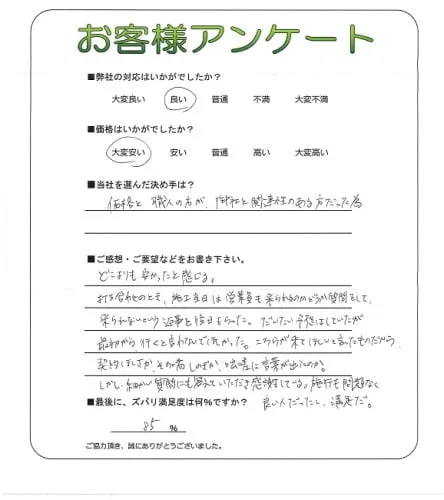 お客様アンケート
■弊社の対応はいかがでしたか?
大変良い 良い 普通 不満 大変不満
■価格はいかがでしたか?
大変安い 安い 普通 高い 大変高い
■当社を選んだ決め手は?
価格と職人の方が、御社と関連性のある方だった為
■ご感想・ご要望などをお書き下さい。
どこよりも安かったと感じる。
打ち合わせのとき、施工当日は営業員も来られるのかどうか質問をして、
来られないという返事を後日もらった。だいたい予想はしていたが
最初から行くと言わないでほしかった。こちらが来てほしいと言ったものだから、
契約ほしさか、その場しのぎか、咄嗟に言葉が出たのか。
しかし、細かい質問にも答えていただき感謝している。施行も問題なく
良い人だったし、満足だ。
■最後に、ズバリ満足度は何%ですか?
85 %
ご協力頂き、誠にありがとうございました。